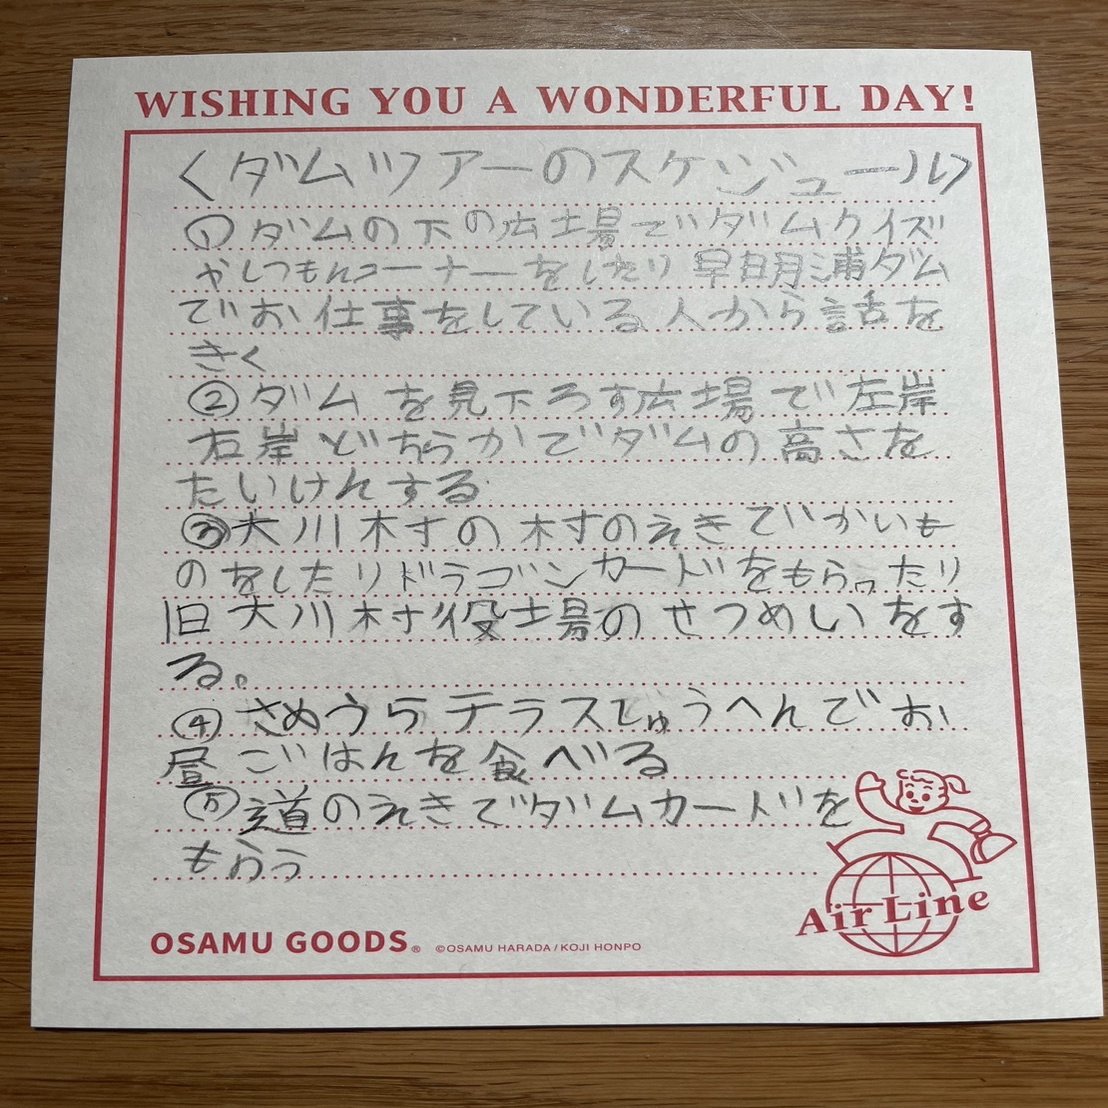 WISHING YOU A WONDERFUL DAY!
〈ダムツアーのスケジュール〉
①ダムの下の広場でダムクイズ
やしつもんコーナーをしたり早明浦ダム
でお仕事をしている人から話を
きく
②ダムを見下ろす広場で左岸
右岸どちらかでダムの高さを
たいけんする
③大川村の村のえきでかいも
のをしたりドラゴンカードをもらったり
旧大川村役場のせつめいをす
る。
④さめうらテラスじゅうへんでお
昼ごはんを食べる
⑤道のえきでダムカードを
もらう
Air Line
OSAMU GOODS® ©OSAMU HARADA / KOJI HONPO